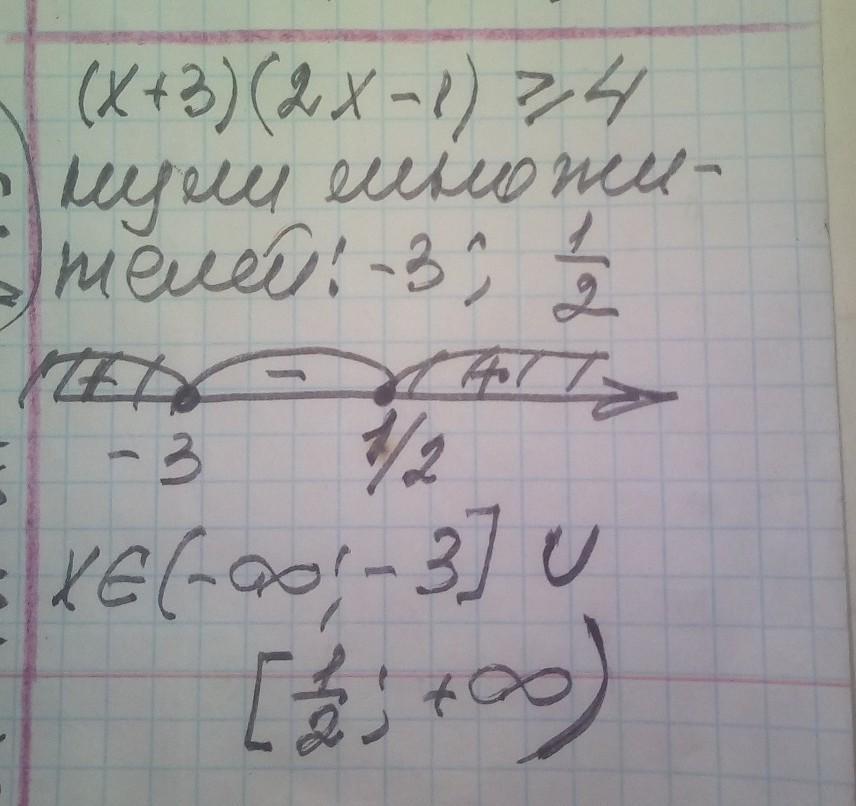 (x+3)(2x-1) ≥ 4
нули множи-
телей: -3; 1/2
+ - +
-3 1/2
x∈(-∞; -3] ∪
[1/2; +∞)